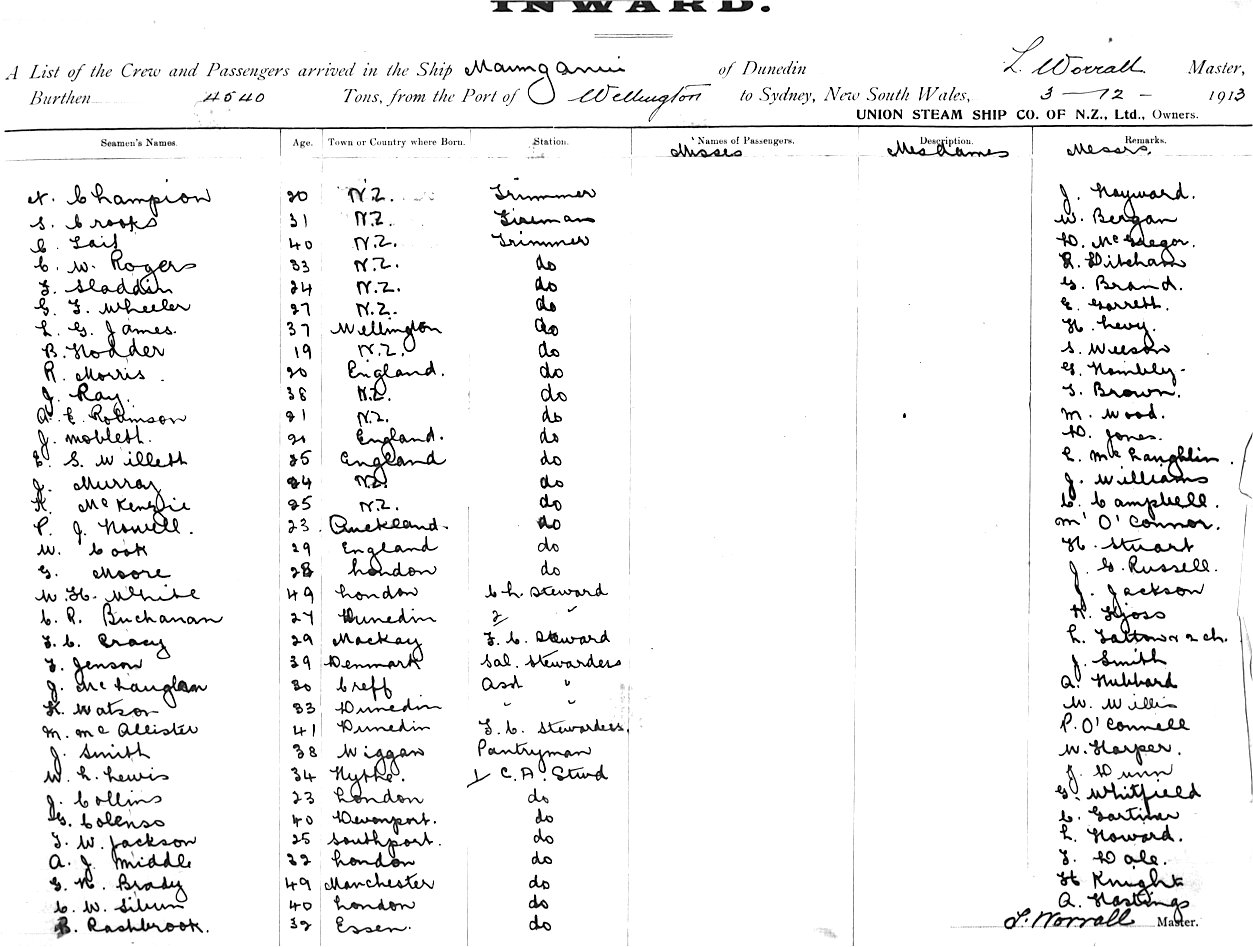 INWARD.
A List of the Crew and Passengers arrived in the Ship Maunganui of Dunedin L. Worrall Master,
Burthen 4540 Tons, from the Port of Wellington to Sydney, New South Wales, 3 - 12 - 1913
UNION STEAM SHIP CO. OF N.Z., Ltd., Owners.
Seamen's Names. Age. Town or Country where Born. Station. Names of Passengers. Description. Remarks.
Misses Mesdames Messrs.
Champion 20 N.Z. Trimmer J. Hayward.
S. Crooks 31 N.Z. Fireman W. Bergan
C. 40 N.Z. Trimmer D. McGregor.
C. W. Rogers 33 N.Z. do Ditcham
F. Sladdin 24 N.Z. do G. Brand.
G. F. Wheeler 27 N.Z. do E. Garrett.
L. G. James. 37 Wellington do H. Levy.
B. Hodder 19 N.Z. do S. Wilson
R. Morris. 20 England. do G. Hambly.
J. Ray. 38 N.Z. do T. Brown.
A. E. Robinson 21 N.Z. do M. Wood.
J. 21 England. do D. Jones.
E. S. Willett 25 England do L. McLaughlin.
J. Murray 24 N.Z. do J. Williams
K. McKenzie 25 N.Z. do C. Campbell.
P. J. Howell. 23 Auckland. do M O'Connor.
W. Cook 29 England do H. Stuart
G. Moore 28 London do J. G. Russell.
W. H. White 49 London Ch. Steward J. Jackson
C. R. Buchanan 27 Dunedin 2 " K.
F. C. Cracy 29 Mackay F. C. Steward L. Tattow & 2 ch.
F. Jenson 39 Denmark Sal. Stewardess J. Smith
J. McLauglan 30 Creff Asst " A. Hubbard
K. Watson 33 Dunedin " " W. Willis
M. McAllister 41 Dunedin F. C. Stewardess. P. O'Connell
J. Smith 38 Wiggan Pantryman W. Harper.
W. L. Lewis 34 Hythe. 1 C. A. Stwd J. Dunn
J. Collins 23 London do G. Whitfield
G. Colenso 40 Devonport. do C. Gartiner
F. W. Jackson 25 Southport. do L. Howard.
A. J. Middle 32 London do F. Dale.
G. H. Brady 49 Manchester do H Knight
C. W. 40 London do A. Hastings
B. Rashbrook. 32 Essen. do L. Worrall Master.